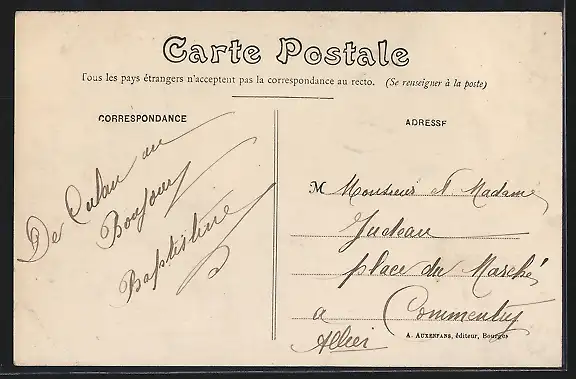 Carte Postale
Tous les pays étrangers n'acceptent pas la correspondance au recto. (Se renseigner à la poste)
CORRESPONDANCE
De Culan un
Bonjour
Baptistine
ADRESSE
M Monsieur et Madame
Judeau
place du Marché
a Commentry
Allier
A. AUXENFANS, éditeur, Bourges